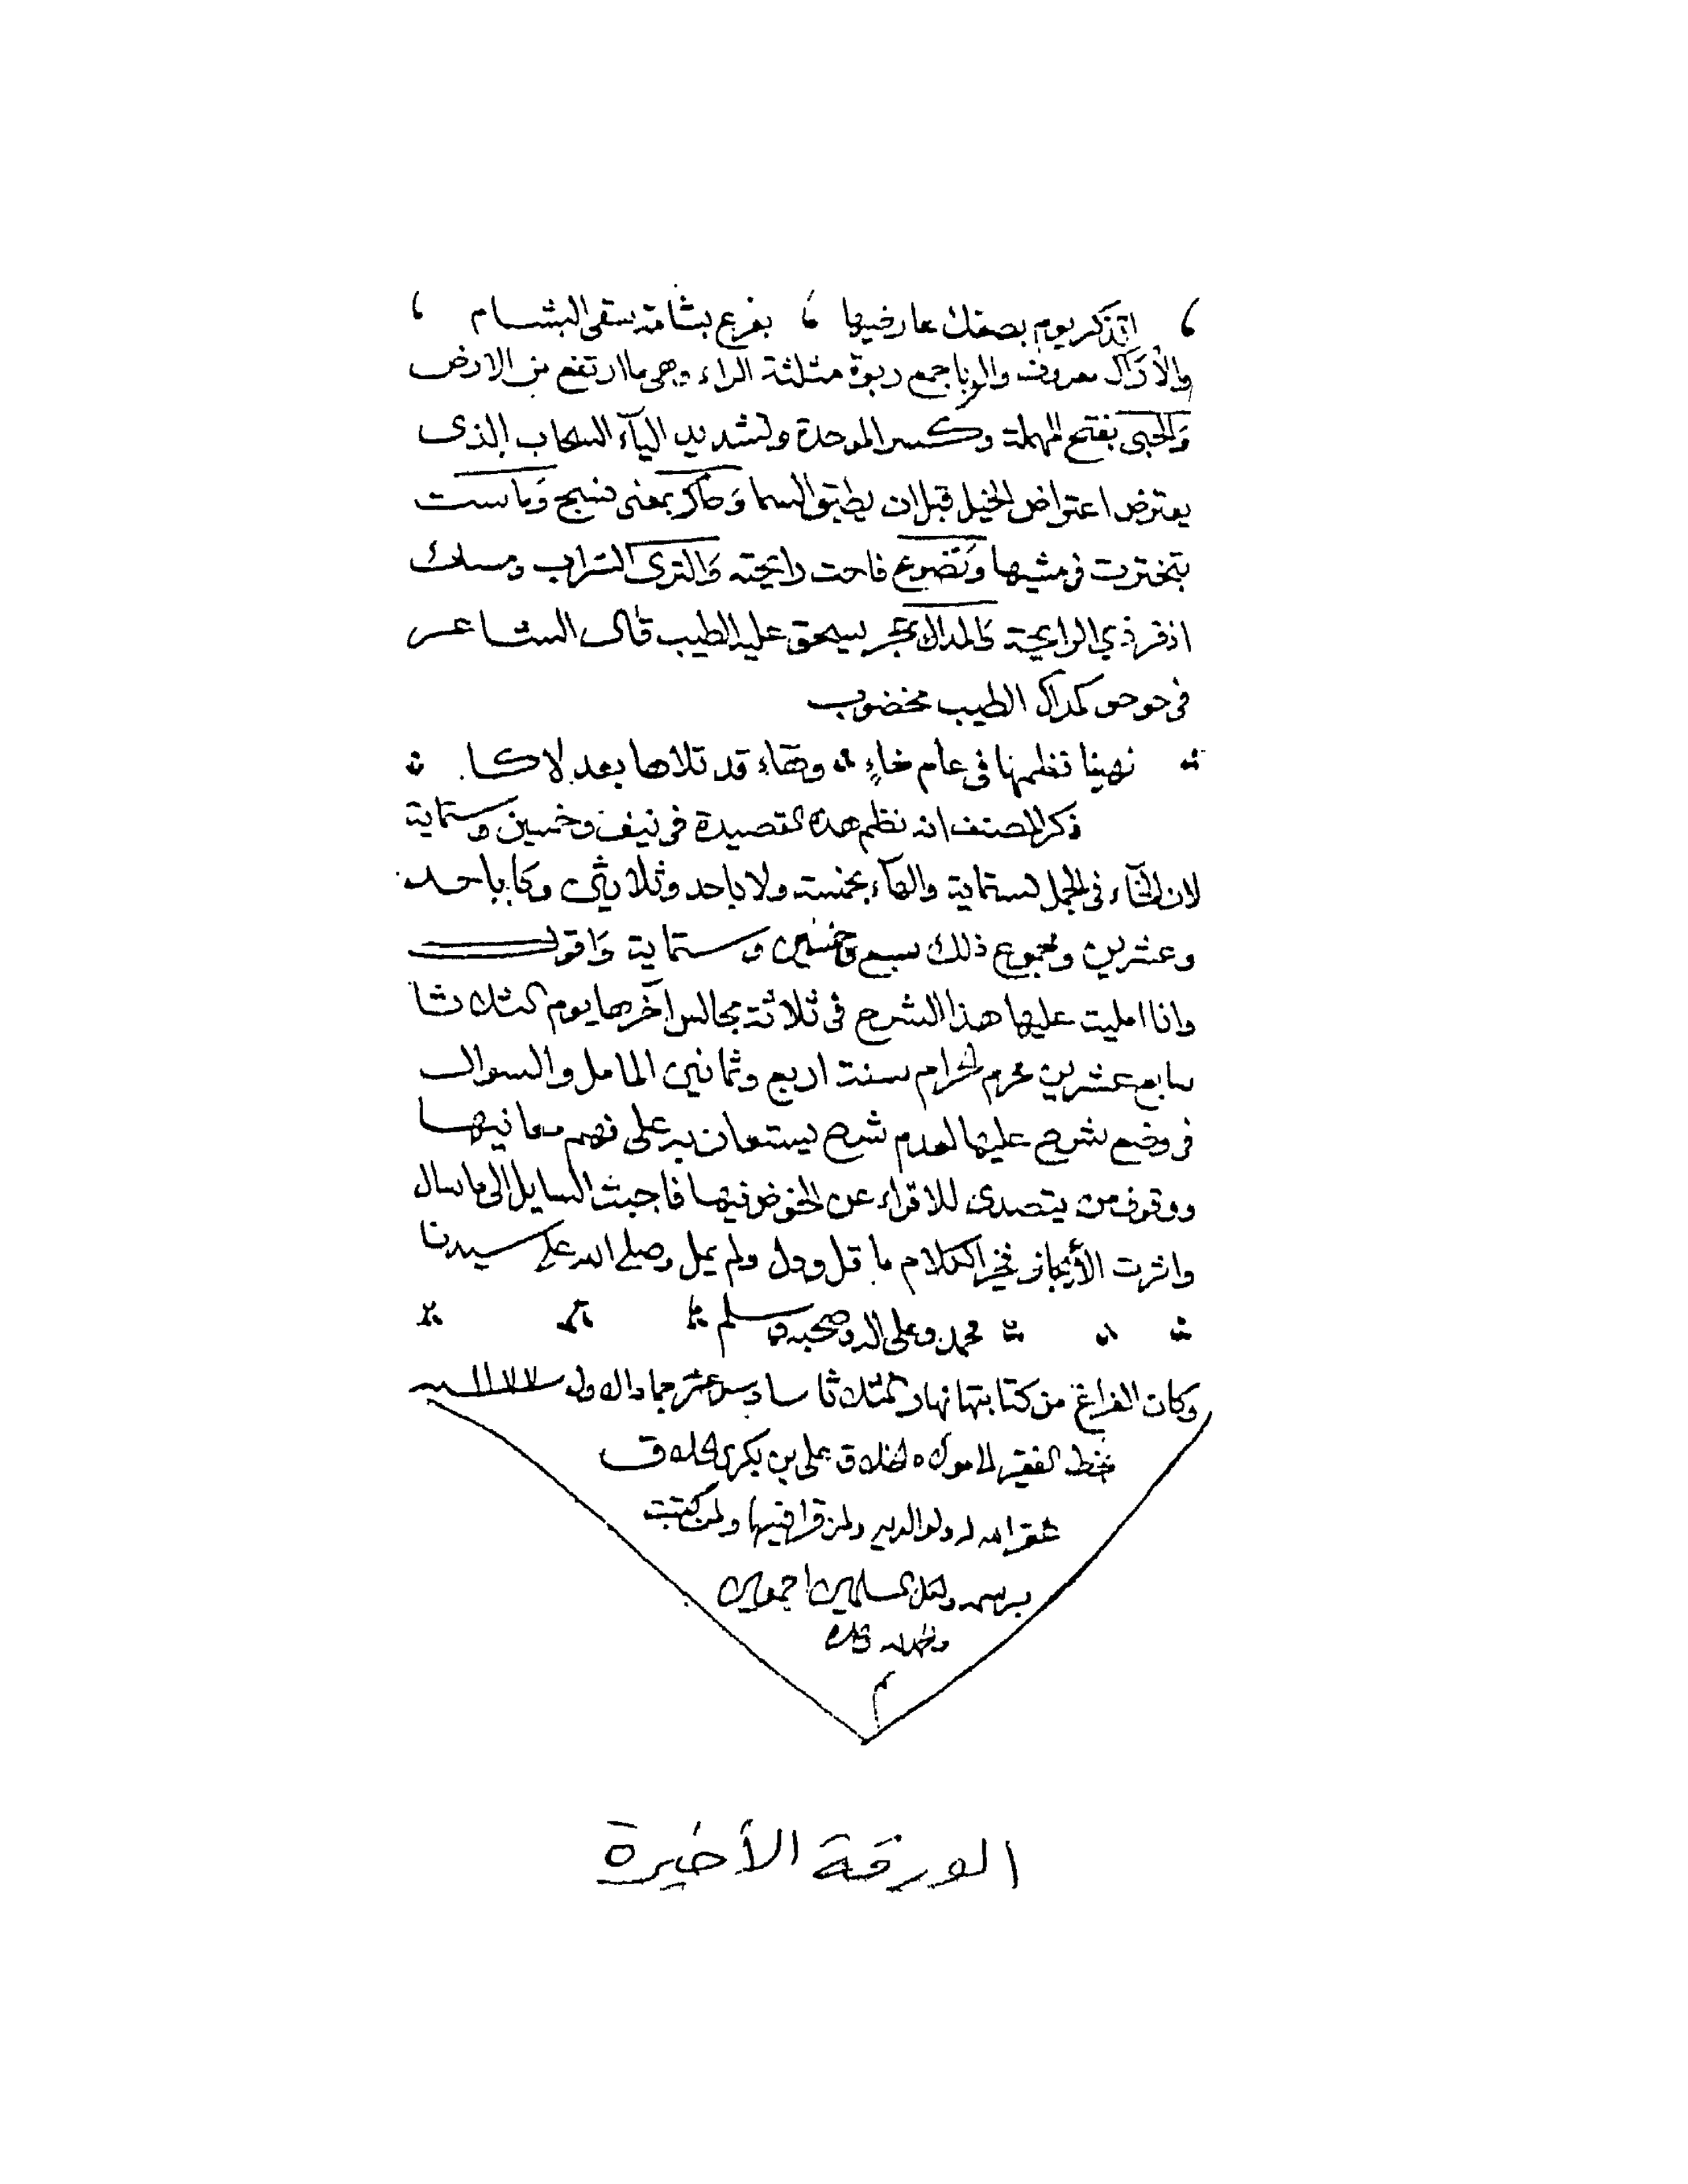 اتذكر يوم بصقك عارضيها ، بفرع بشامة سقى البشام
والأراك معروف والربا جمع ربوة مثلثة الراء وهي ما ارتفع من الارض
والحبى بفتح المهملة وكسر الموحدة وتشديد اليآء السحاب الذى
يعترض اعتراض الخيل قبل ان يطبق السما وحاك بمعنى نسج وماست
تبخترت في مشيها وتضوع فاحت رايحته والثرى التراب ومسك
اذفر ذي الرايحة والمداك حجر يسحق عليه الطيب قال الشاعر
فى جوجو كمداك الطيب مخضوب
نهينا نظمها فى عام خاءٍ وهاء قد تلاها بعد لا كا
ذكر المصنف انه نظم هذه القصيدة فى نيف وخمسين وستماية
لان الخآء فى الجمل بستماية والهآء بخمسة ولا باحد وثلاثين وكا باحد
وعشرين ومجموع ذلك سبع وخمسين وستماية واقول
وانا امليت عليها هذا الشرح فى ثلاثة مجالس آخرها يوم الثلاثا
سابع عشرين محرم الحرام سنة اربع وثمانين والسوال
فى وضع شرح عليها لعدم شرح يستعان به على فهم معانيها
ووقوف من يتصدى للاقراء عن الخوض فيها فاجبت السايل الى ما سال
واثرت الأيجاز فخير الكلام ما قل ودل ولم يمل وصلى الله على سيدنا
محمد وعلى اله وصحبه وسلم
وكان الفراغ من كتابتها نهار الثلاثا سادس عشر جماد الاول سنة ١١٧٧
بخط الفقير الى مولاه الخلاق على بن بكرى الحلاق
غفر الله له ولوالديه ولمن قرا فيها ولمن كتبت
برسمه ولكل المسلمين اجمعين
والحمد لله
م
الورقة الأخيرة